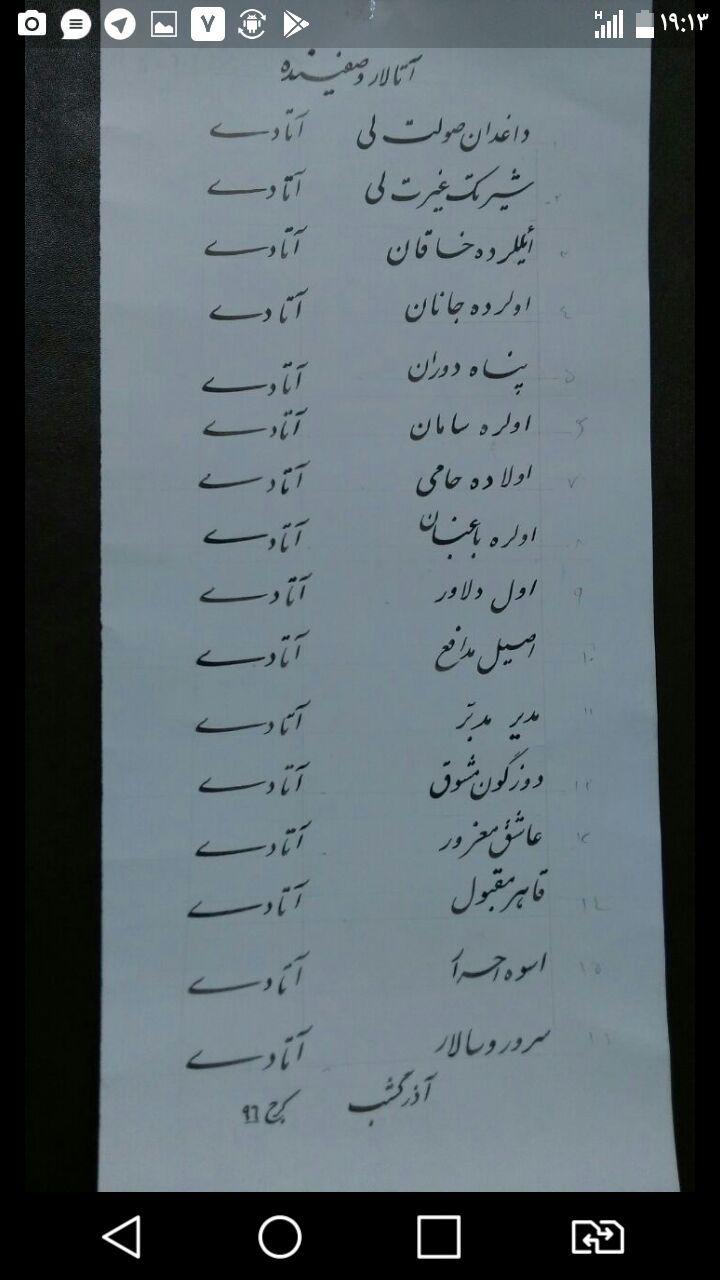 ۱۹:۱۳
آتالار وصفینده
۱ داغدان صولت لی آتادے
۲ شیر تک غیرت لی آتادے
۳ ائللرده خاقان آتادے
۴ اولرده جانان آتادے
۵ پناه دوران آتادے
۶ اولره سامان آتادے
۷ اولاده حامی آتادے
۸ اولره باغبان آتادے
۹ اول دلاور آتادے
۱۰ اصیل مدافع آتادے
۱۱ مدیر مدبّر آتادے
۱۲ دوزگون مشوق آتادے
۱۳ عاشق مغرور آتادے
۱۴ قاهر مقبول آتادے
۱۵ اسوه احرار آتادے
۱۶ سرور و سالار آتادے
آذرگشب کرج ۹۶